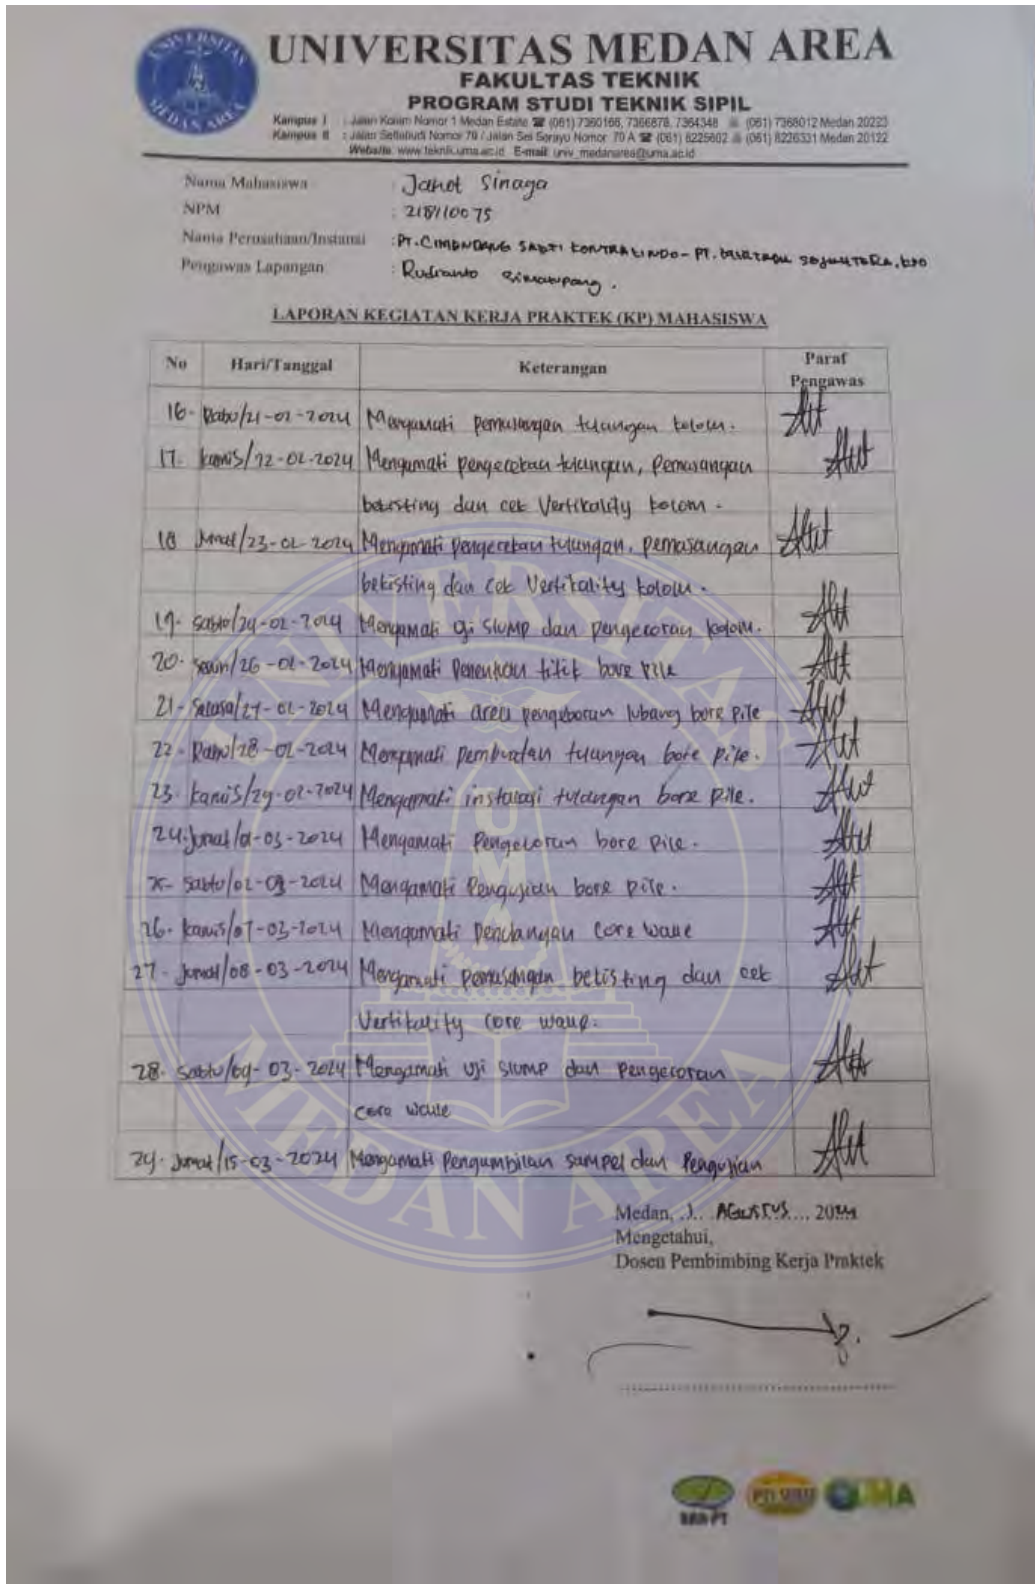 UNIVERSITAS MEDAN AREA
FAKULTAS TEKNIK
PROGRAM STUDI TEKNIK SIPIL
Kampus I : Jalan Kolam Nomor 1 Medan Estate ☎ (061) 7360168, 7366878, 7364348 (061) 7368012 Medan 20223
Kampus II : Jalan Setiabudi Nomor 79 / Jalan Sei Serayu Nomor 70 A ☎ (061) 8225602 (061) 8226331 Medan 20122
Website: www.teknik.uma.ac.id E-mail: univ_medanarea@uma.ac.id
Nama Mahasiswa : Jahot Sinaga
NPM : 218110075
Nama Perusahaan/Instansi : PT. CIMENDANG SAKTI KONTRAKINDO - PT.
Pengawas Lapangan : Rudianto Simatupang.
LAPORAN KEGIATAN KERJA PRAKTEK (KP) MAHASISWA
No Hari/Tanggal Keterangan Paraf Pengawas
16. Rabu/21-02-2024 Mengamati pemasangan tulangan kolom.
17. Kamis/22-02-2024 Mengamati pengecekan tulangan, pemasangan
bekisting dan cek Vertikality kolom.
18 Jumat/23-02-2024 Mengamati pengecekan tulangan, pemasangan
bekisting dan cek Vertikality kolom.
19. Sabtu/24-02-2024 Mengamati uji slump dan pengecoran kolom.
20. Senin/26-02-2024 Mengamati Penentuan titik bore pile
21. Selasa/27-02-2024 Mengamati area pengeboran lubang bore pile
22. Rabu/28-02-2024 Mengamati pembuatan tulangan bore pile.
23. Kamis/29-02-2024 Mengamati instalasi tulangan bore pile.
24. Jumat/01-03-2024 Mengamati Pengecoran bore pile.
25. Sabtu/02-03-2024 Mengamati Pengujian bore pile.
26. Kamis/07-03-2024 Mengamati Penulangan core wall
27. Jumat/08-03-2024 Mengamati Pemasangan bekisting dan cek
Vertikality core wall.
28. Sabtu/09-03-2024 Mengamati uji slump dan Pengecoran
core wall
29. Jumat/15-03-2024 Mengamati Pengambilan sampel dan Pengujian
Medan, 1 AGUSTUS 2024
Mengetahui,
Dosen Pembimbing Kerja Praktek
UNIVERSITAS MEDAN AREA
UMA
BAN-PT
UMA